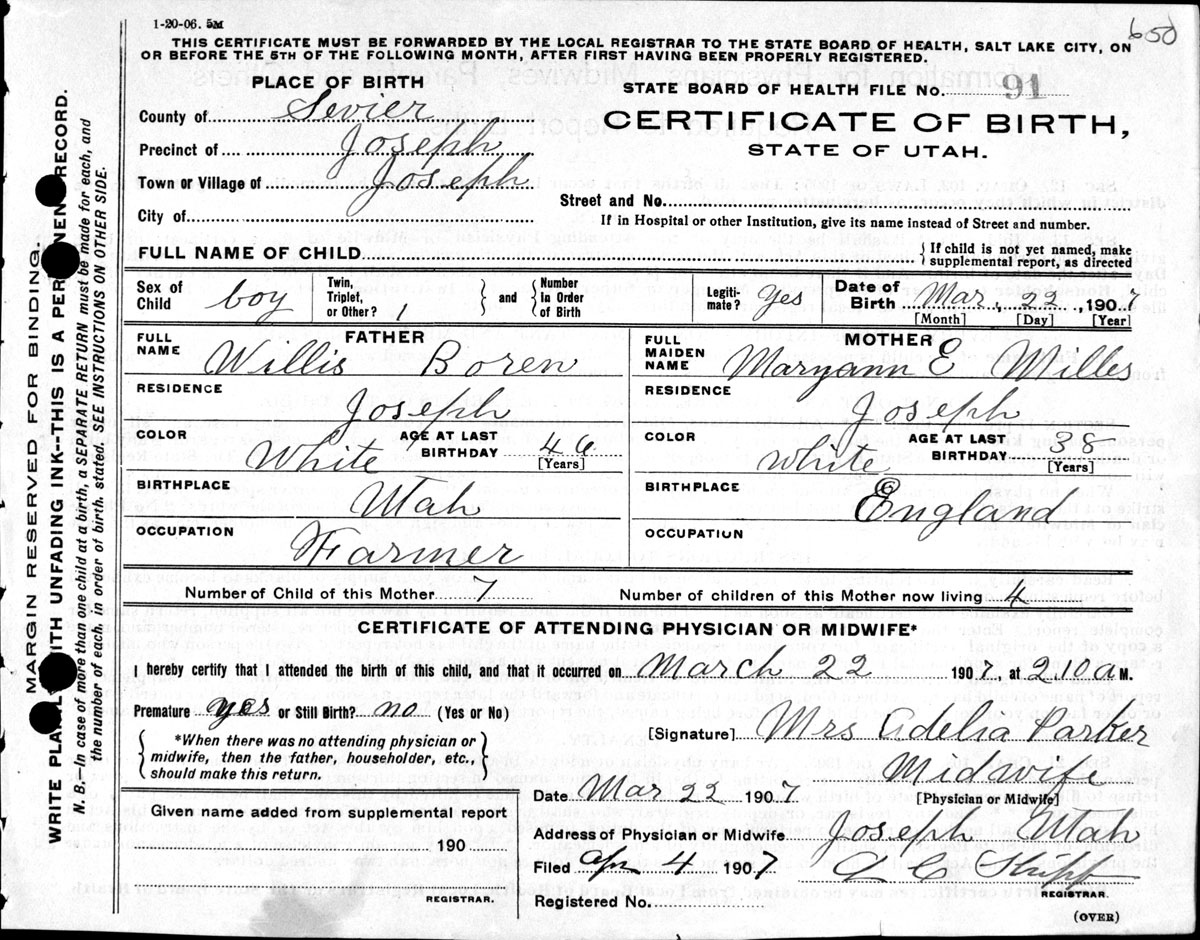 650
1-20-06. 5M
THIS CERTIFICATE MUST BE FORWARDED BY THE LOCAL REGISTRAR TO THE STATE BOARD OF HEALTH, SALT LAKE CITY, ON
OR BEFORE THE 5TH OF THE FOLLOWING MONTH, AFTER FIRST HAVING BEEN PROPERLY REGISTERED.
PLACE OF BIRTH
County of Sevier
Precinct of Joseph
Town or Village of Joseph
City of
STATE BOARD OF HEALTH FILE No. 91
CERTIFICATE OF BIRTH,
STATE OF UTAH.
Street and No.
If in Hospital or other Institution, give its name instead of Street and number.
FULL NAME OF CHILD
{ If child is not yet named, make
supplemental report, as directed
Sex of Child boy
Twin, Triplet, or Other? 1 } and { Number In Order of Birth
Legiti- mate? Yes
Date of Birth Mar 22 1907
[Month] [Day] [Year]
FATHER
FULL NAME Willis Boren
RESIDENCE
Joseph
COLOR White AGE AT LAST BIRTHDAY 46
[Years]
BIRTHPLACE
Utah
OCCUPATION
Farmer
MOTHER
FULL MAIDEN NAME Maryann E Milles
RESIDENCE
Joseph
COLOR White AGE AT LAST BIRTHDAY 38
[Years]
BIRTHPLACE
England
OCCUPATION
Number of Child of this Mother 7 Number of children of this Mother now living 4
CERTIFICATE OF ATTENDING PHYSICIAN OR MIDWIFE*
I hereby certify that I attended the birth of this child, and that it occurred on March 22 1907, at 2.10 a M.
Premature yes or Still Birth? no (Yes or No)
{ *When there was no attending physician or
midwife, then the father, householder, etc.,
should make this return. }
[Signature] Mrs Adelia Parker
Midwife
Date Mar 22 1907 [Physician or Midwife]
Given name added from supplemental report
190
REGISTRAR.
Address of Physician or Midwife Joseph Utah
Filed Apr 4 1907
REGISTRAR.
Registered No.
(OVER)
MARGIN RESERVED FOR BINDING.
WRITE PLAINLY WITH UNFADING INK--THIS IS A PERMANENT RECORD.
N. B.—In case of more than one child at birth, a SEPARATE RETURN must be made for each, and
the number of each, in order of birth, stated. SEE INSTRUCTIONS ON OTHER SIDE.